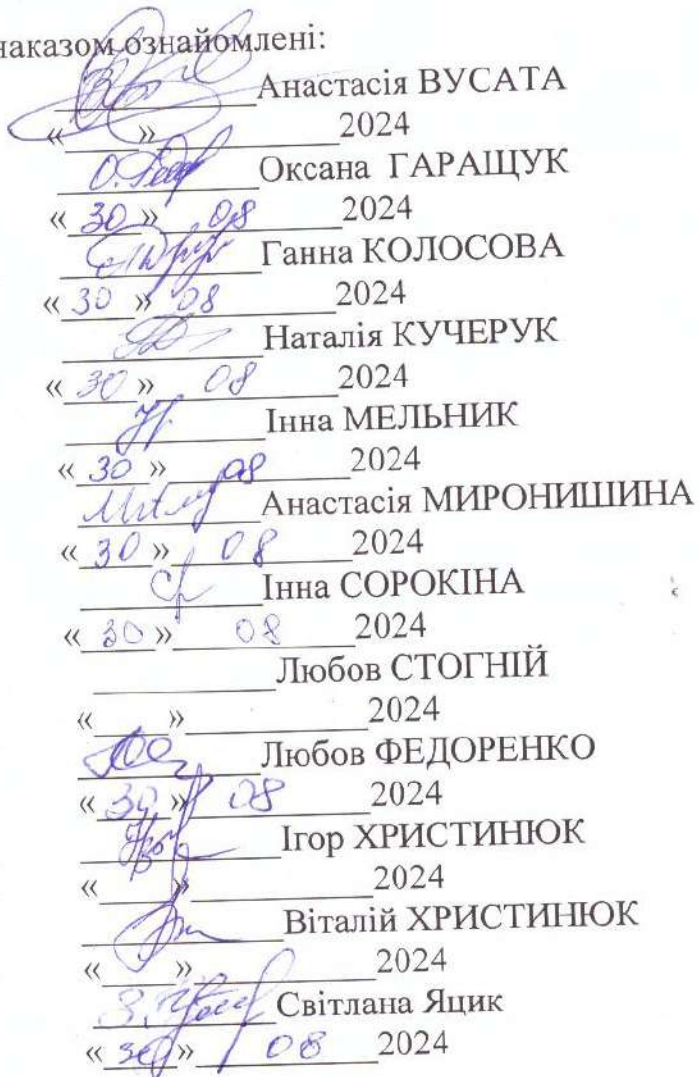 наказом ознайомлені:
Анастасія ВУСАТА
«____»__________2024
Оксана ГАРАЩУК
« 30 » 08 2024
Ганна КОЛОСОВА
« 30 » 08 2024
Наталія КУЧЕРУК
« 30 » 08 2024
Інна МЕЛЬНИК
« 30 » 08 2024
Анастасія МИРОНИШИНА
« 30 » 08 2024
Інна СОРОКІНА
« 30 » 08 2024
Любов СТОГНІЙ
«____»__________2024
Любов ФЕДОРЕНКО
« 30 » 08 2024
Ігор ХРИСТИНЮК
«____»__________2024
Віталій ХРИСТИНЮК
«____»__________2024
Світлана Яцик
« 30 » 08 2024